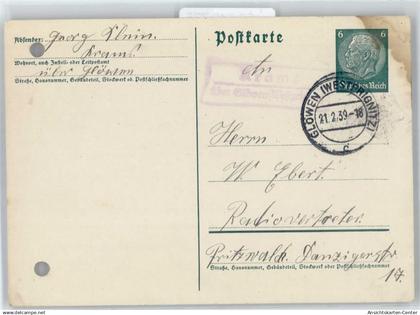 Absender: Georg Klein
Krams
Wohnort, auch Zustell- oder Leitpostamt
über Glöwen
Straße, Hausnummer, Gebäudeteil, Stockwerk od. Postschließfachnummer
Postkarte
An
6 6
Deutsches Reich
Krams
GLÖWEN (WESTPRIGNITZ)
21.2.39.-18
c
Herrn
W. Ebert.
Radiovertreter
Pritzwalk. Danzigerstr
17.
Straße, Hausnummer, Gebäudeteil, Stockwerk oder Postschließfachnummer
Ansichtskarten-Center